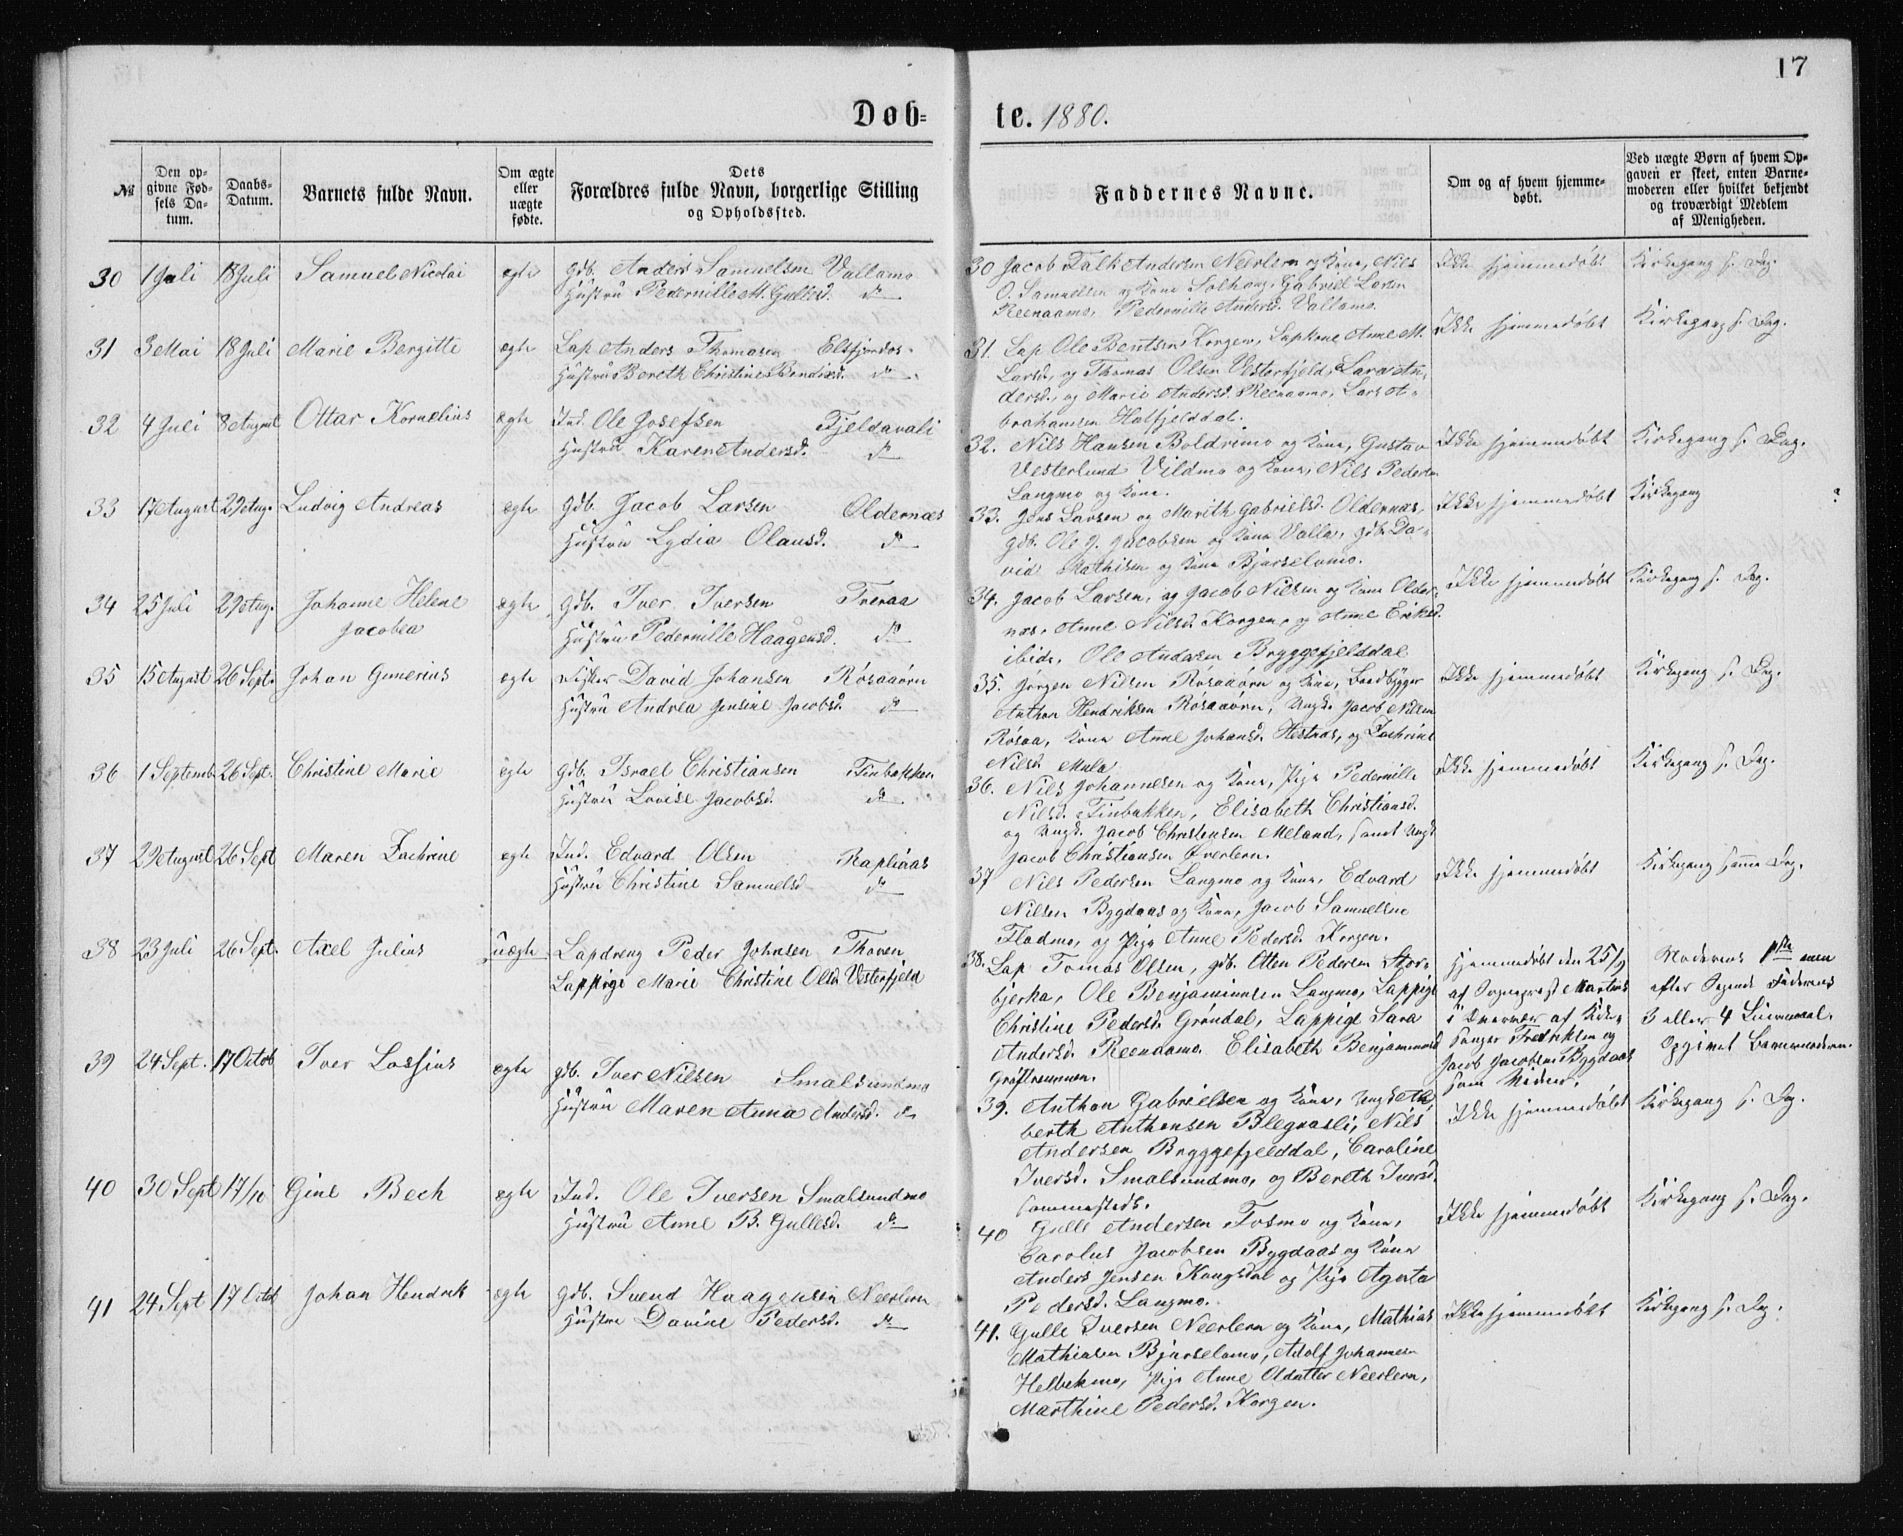 17
Døb=
te. 1880.
№
Den op-
givne Fød-
sels Da-
tum.
Daabs-
Datum.
Barnets fulde Navn.
Om ægte
eller
uægte
fødte.
Dets
Forældres fulde Navn, borgerlige Stilling
og Opholdssted.
Faddernes Navne.
Om og af hvem hjemme-
døbt.
Ved uægte Børn af hvem Op-
gaven er skeet, enten Barne-
moderen eller hvilket bekjendt
og troværdigt Medlem
af Menigheden.
30 1 Juli 18 Juli Samuel Nicolai ægte Gdb. Anders Samuelsen Vallamo
Hustru Pedernille M. Gullesd. do
31 3 Mai 18 Juli Marie Bergitte ægte Lap Anders Thomasen
Hustru Bereth Christine Bendixd. do
32 4 Juli 8 August Ottar Kornelius ægte Ind. Ole Josefsen Fjeldavali
Hustru Karen Andersd. do
33 17 August 29 Aug. Ludvig Andreas ægte Gdb. Jacob Larsen Oldernæs
Hustru Lydia Olausd. do
34 25 Juli 29 Aug. Johanne Helene ægte Gdb. Iver Iversen Treraa
Jacobea Hustru Pedernille Haagensd. do
35 15 August 26 Sept. Johan Gunerius ægte Fisker David Johansen Rösaaörn
Hustru Andrea Jensine Jacobsd. do
36 1 Septemb. 26 Sept. Christine Marie ægte Gdb. Israel Christiansen Finbakken
Hustru Lovise Jacobsd. do
37 29 August 26 Sept Maren Zachrine ægte Ind. Edvard Olsen Rapliaas
Hustru Christine Samuelsd do
38 23 Juli 26 Sept. Axel Julius uægte Lapdreng Peder Johnsen Thoven
Lappige Marie Christine Olsd. Vesterfjeld
39 24 Sept. 17 Octob Iver Lossius ægte Gdb. Iver Nilsen Smalsundmo
Hustru Maren Anna Andersd. do
40 30 Sept 17/10 Gine Bech ægte Ind. Ole Iversen Smalsundmo
Hustru Anne B. Gullesd. do
41 24 Sept 17 Octob Johan Hendrik ægte Gdb. Svend Haagensen Neerlern
Hustru Davine Pedersd. do
30 Jacob Falk Andersen Neerlern og Kone, Nils
O. Samuelsen og Kone Solhaug, Gabriel Larsen
Reenaamo, Pedernille Andersd. Vallamo.
Ikke hjemmedøbt Kirkegang s. Dag.
31. Lap Ole Bentsen Korgen, Lapkone Anne M.
Larsd. og Thomas Olsen Vesterfjeld, Lara An-
dersd. og Marie Andersd. Reenaamo, Lars A-
brahamsen Hatfjelddal.
Ikke hjemmedøbt Kirkegang s. Dag.
32. Nils Hansen Boldrimo og Kone, Gustav
Vesterlund Vildmo og Kone, Nils Pedersen
Langmo og Kone.
Ikke hjemmedøbt Kirkegang s. Dag.
33. Jens Larsen og Marith Gabrielsd. Oldernæs,
gdb. Ole J. Jacobsen og Kone Valla, gdb. Da-
vid Mathisen og Kone Bjurselvmo.
Ikke hjemmedøbt Kirkegang
34. Jacob Larsen, og Jacob Nielsen og Kone Older-
næs, Anne Nilsd. Korgen, og Anne Eriksd.
ibid., Ole Andersen Bryggefjelddal
Ikke hjemmedøbt Kirkegang s. Dag.
35. Jørgen Nilsen Rösaaörn og Kone, Landbygger
Anthon Hendriksen Rösaaörn, Ungk. Jacob Nilsen
Rösaa, Kone Anne Johansd. Hestnæs, og Zachrine
Nilsd. Mula
Ikke hjemmedøbt Kirkegang s. Dag.
36. Nils Johannesen og Kone, Pige Pedernille
Nilsd. Finbakken, Elisabeth Christiansd.
og Ungk. Jacob Christensen Meland, samt Ungk
Jacob Christiansen Överlern.
Ikke hjemmedøbt Kirkegang s. Dag.
37 Nils Pedersen Langmo og Kone, Edvard
Nilsen Bygdaas og Kone, Jacob Samuelsen
Fladmo, og Pige Anne Pedersd. Korgen.
Ikke hjemmedøbt Kirkegang samme Dag.
38. Lap Tomas Olsen, gdb. Otten Pedersen Stor-
bjerka, Ole Benjaminsen Langmo, Lappige
Christine Pedersd. Gröndal, Lappige Sara
Andersd. Reenaamo. Elisabeth Benjaminsd
Hjemmedøbt den 25/9
af Sognepræst Martens
i Nærvær af Kirke-
sanger Fredriksen og
Jacob Jacobsen Bygdaas
som Vidner.
Moderens 1ste men
efter Sigende Faderens
3 eller 4 Leiermaal.
Opgivet Barnemoderen.
39. Anthon Gabrielsen og Kone, Ungk. Al-
berth Anthonsen Blegnasli, Nils
Andersen Bryggefjelddal, Caroline
Iversd. Smalsundmo, og Bereth Iversd.
sammesteds.
Ikke hjemmedøbt Kirkegang s. Dag.
40 Gulle Andersen Fosmo og Kone,
Carolus Jacobsen Bygdaas og Kone
Anders Jensen Kongsdal og Pige Agenta
Pedersd. Langmo.
Ikke hjemmedøbt Kirkegang s. Dag.
41. Gulle Iversen Neerlern og Kone, Mathias
Mathiasen Bjurselvmo, Adolf Johansen
Helbekmo, Pige Anne Oldatter Neerlern,
Marthine Pedersd. Korgen.
Ikke hjemmedøbt Kirkegang s. Dag.